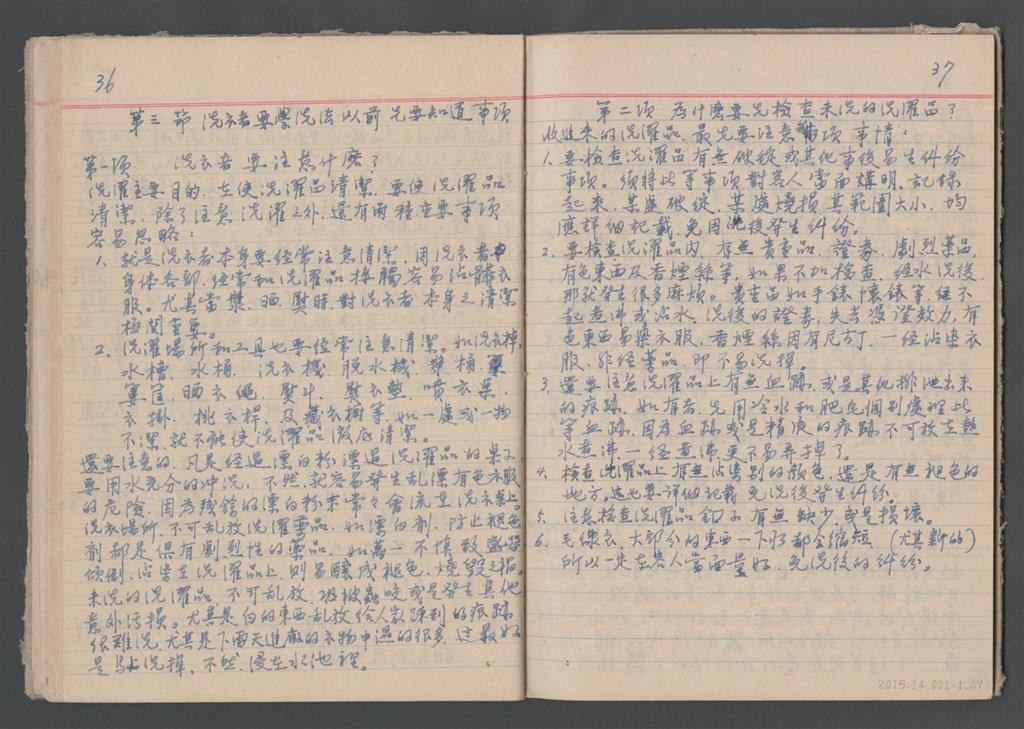 36
第三節 洗衣者要學洗法以前先要知道事項
第一項 洗衣者要注意什麼?
洗濯主要目的、在使洗濯品清潔、要使洗濯品
清潔、除了注意洗濯之外、還有两種重要事項
容易忽略:
1、就是洗衣者本身要經常注意清潔、因洗衣者
身体各部、經常和洗濯品接觸容易沾髒衣
服。尤其當漿、晒、熨時、對洗衣者本身之清潔
極関重要。
2、洗濯場所和工具也要經常注意清潔。如洗衣棹、
水槽、水桶、洗衣機、脱水機、漿桶、
窶筐、晒衣繩、熨斗、熨衣墊、噴衣器、
衣掛、桃衣桿、及藏衣橱等、如一處或一物
不潔、就不能使洗濯品澈底清潔。
還要注意的、凡是经過漂白粉漂過洗濯品的桌子、
要用水充分的冲洗、不然、就容易發生乱漂有色衣服
的危險、因為残餘的漂白粉末常々會流至洗衣桌上。
洗衣場所、不可乱放洗濯藥品、如漂白剤、防止褪色
剤都是俱有劇烈性的藥品、如萬一不慎致
傾倒、沾染在洗濯品上、則易釀成褪色、燒毀之禍。
未洗的洗濯品、不可乱放、被蟲咬或是發生其他
意外污損。尤其是白的東西乱放給人款踩到的痕跡
很難洗、尤其是下雨天進廠的衣物中湿的很多、這最好
是馬上洗掉、不然、浸在水池裡。
37
第二項 為什麼要先檢查未洗的洗濯品?
收進來的洗濯品、最先要注意 項事情:
1、要檢查洗濯品有無破綻或其他事後易生糾紛
事項。須將此等事項對客人當面講明、記錄
起來、某處破綻、某處燒損其範圍大小、均
應詳細記載、免因此後發生糾紛。
2、要檢查洗濯品内、有無貴重品、證券、劇烈藥品、
有色東西及香煙絲等、如果不加檢查、經水洗後、
那就發生很多麻煩。貴重品如手錶懷錶等、經不
起煮沸或沾水、洗後的證券、失去憑證効力、有
色東西易染衣服、香煙絲因有尼古丁、一经沾染衣
服、非经藥品、即不易洗掉。
3、還要注意洗濯品上有無血跡、或是其他排泄出來
的痕跡、如有者、先用冷水和肥皂個别處理此
等血跡、因為血跡或是精液的痕跡不可放在熱
水煮沸、一經煮沸更不易弄掉了。
4、檢查洗濯品上有無沾染别的顏色、還是有無褪色的
地方、這也要詳細記載免洗後發生糾紛。
5、注意檢查洗濯品釦子有無缺少或是損壞。
6、毛線衣、大部分的東西一下水都会縮短 (尤其新的)
所以一定在客人當面量好、免洗後的糾紛。
2015.14.001-1.27